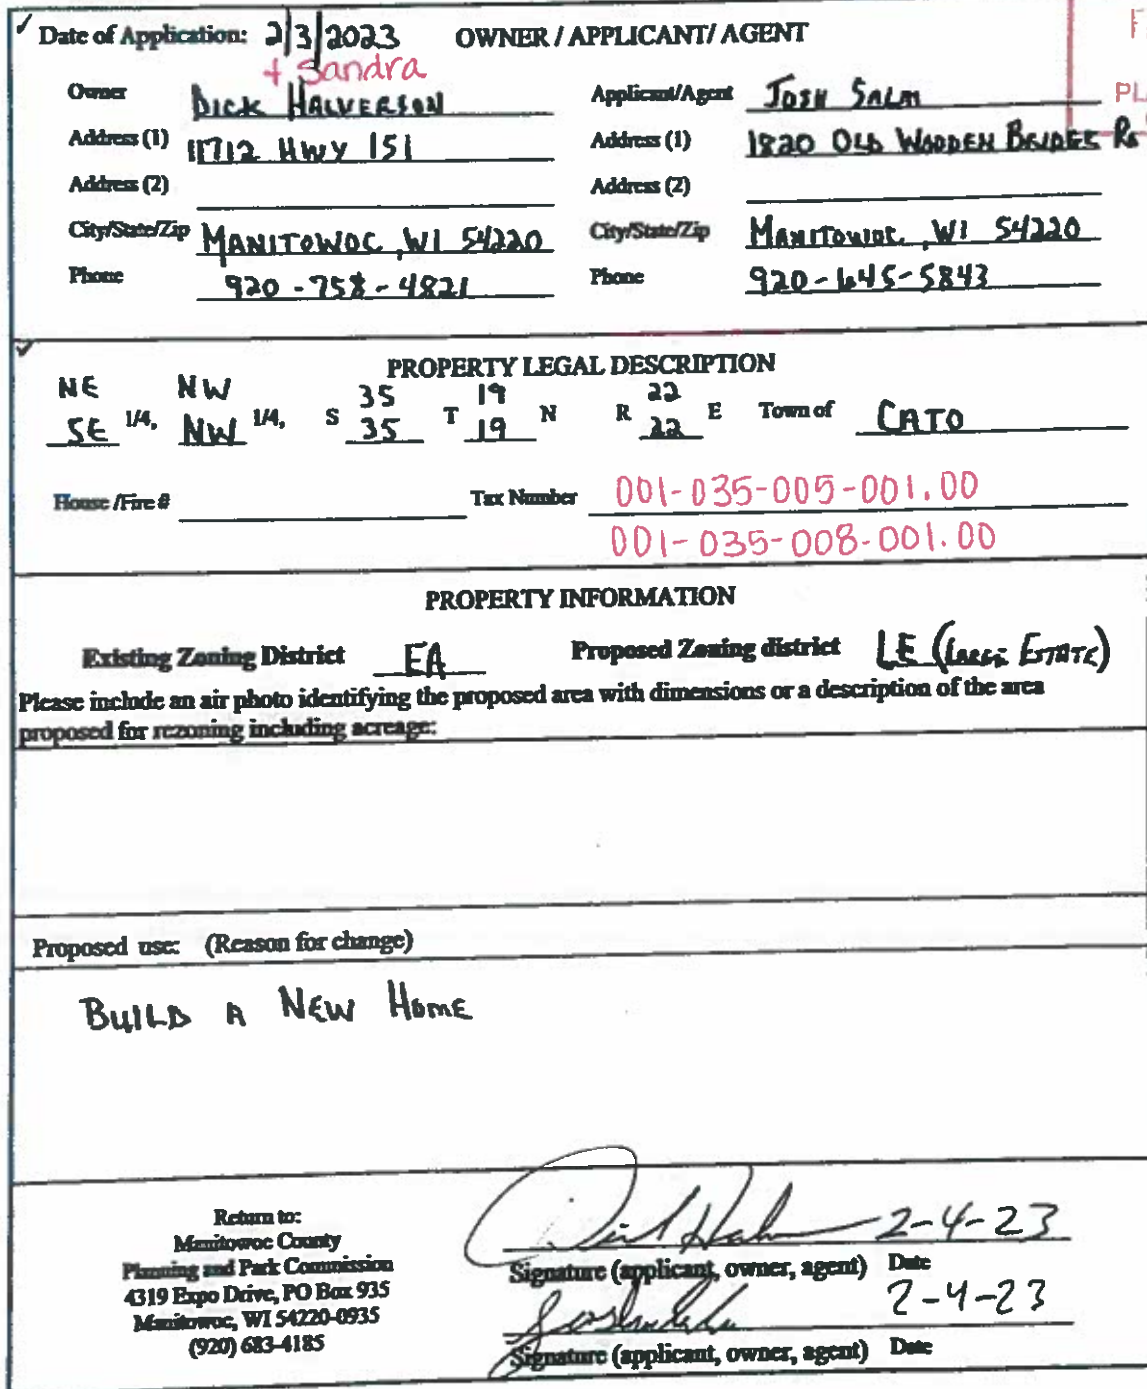 ✓ Date of Application: 2/3/2023 OWNER / APPLICANT/ AGENT F
+ Sandra
Owner DICK HALVERSON Applicant/Agent JOSH SALM PL
Address (1) 11712 HWY 151 Address (1) 1820 OLD WOODEN BRIDGE RD
Address (2) Address (2)
City/State/Zip MANITOWOC, WI 54220 City/State/Zip MANITOWOC, WI 54220
Phone 920-758-4821 Phone 920-645-5843
✓ PROPERTY LEGAL DESCRIPTION
NE NW 35 19 22
SE 1/4, NW 1/4, S 35 T 19 N R 22 E Town of CATO
House /Fire # Tax Number 001-035-005-001.00
001-035-008-001.00
PROPERTY INFORMATION
Existing Zoning District EA Proposed Zoning district LE (LARGE ESTATE)
Please include an air photo identifying the proposed area with dimensions or a description of the area
proposed for rezoning including acreage:
Proposed use: (Reason for change)
BUILD A NEW HOME
Return to:
Manitowoc County
Planning and Park Commission
4319 Expo Drive, PO Box 935
Manitowoc, WI 54220-0935
(920) 683-4185
2-4-23
Signature (applicant, owner, agent) Date
2-4-23
Signature (applicant, owner, agent) Date